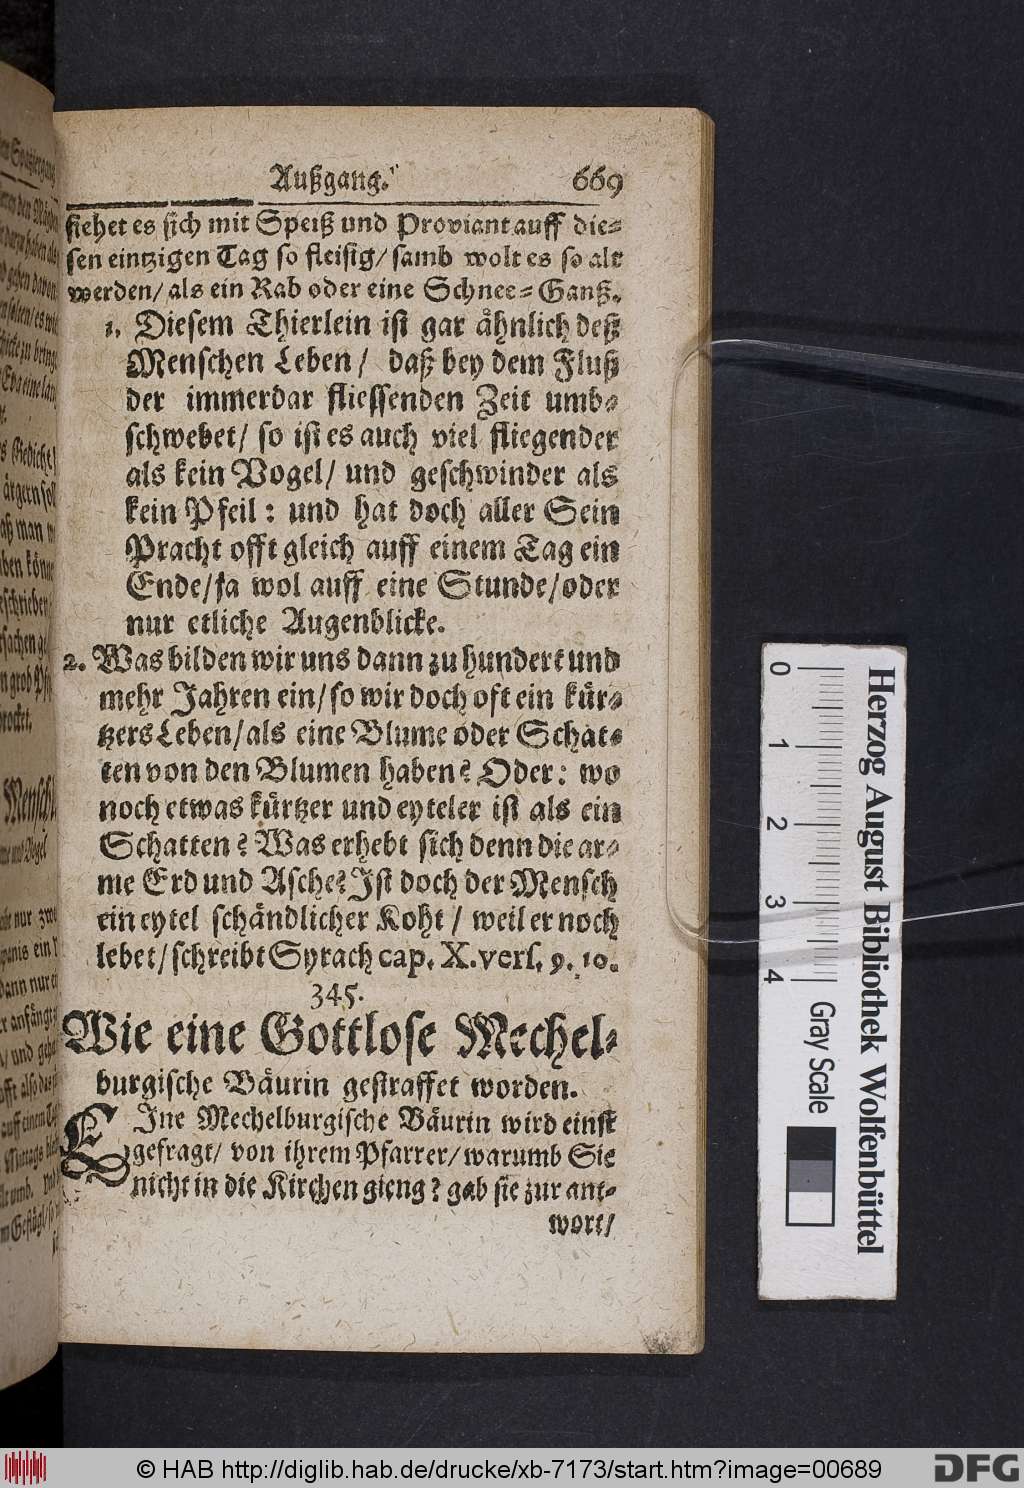 Außgang. 669
siehet es sich mit Speiß und Proviant auff die-
sen eintzigen Tag so fleisig/ samb wolt es so alt
werden/ als ein Rab oder eine Schnee-Ganß.
1. Diesem Thierlein ist gar ähnlich deß
Menschen Leben/ daß bey dem Fluß
der immerdar fliessenden Zeit umb-
schwebet/ so ist es auch viel fliegender
als kein Vogel/ und geschwinder als
kein Pfeil: und hat doch aller Sein
Pracht offt gleich auff einem Tag ein
Ende/ ja wol auff eine Stunde/ oder
nur etliche Augenblicke.
2. Was bilden wir uns dann zu hundert und
mehr Jahren ein/ so wir doch oft ein kür-
tzers Leben/ als eine Blume oder Schat-
ten von den Blumen haben? Oder: wo
noch etwas kürtzer und eyteler ist als ein
Schatten? Was erhebt sich denn die ar-
me Erd und Asche? Ist doch der Mensch
ein eytel schändlicher Koht/ weil er noch
lebet/ schreibt Syrach cap. X. vers. 9. 10.
345.
Wie eine Gottlose Mechel-
burgische Bäurin gestraffet worden.
EIne Mechelburgische Bäurin wird einst
gefragt/ von ihrem Pfarrer/ warumb Sie
nicht in die Kirchen gieng? gab sie zur ant-
wort/
Herzog August Bibliothek Wolfenbüttel
0 1 2 3 4 Gray Scale
© HAB http://diglib.hab.de/drucke/xb-7173/start.htm?image=00689
DFG